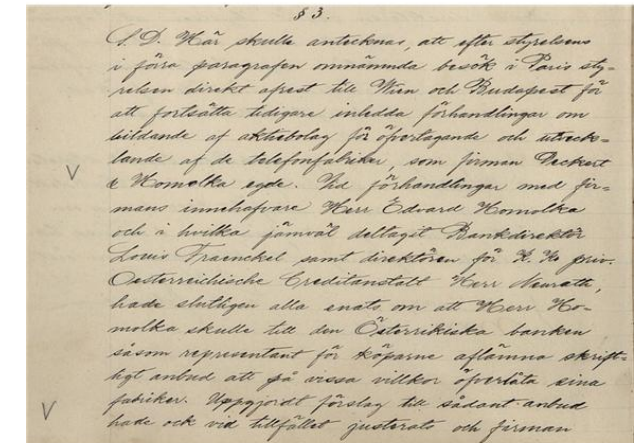 § 3.
S. D. Här skulle antecknas, att efter styrelsens
i förra paragrafen omnämnda besök i Paris sty-
relsen direkt afrest till Wien och Budapest för
att fortsätta tidigare inledda förhandlingar om
bildande af aktiebolag för öfvertagande och utveck-
lande af de telefonfabriker, som firman Deckert
& Homolka egde. Vid förhandlingar med fir-
mans innehafvare Herr Edvard Homolka
och i hvilka jämväl deltagit Bankdirektör
Louis Fraenckel samt direktören för K. K. priv.
Oesterreichische Creditanstalt Herr Neurath,
hade slutligen alla enats om att Herr Ho-
molka skulle till den Österrikiska banken
såsom representant för köparne aflämna skrift-
ligt anbud att på vissa villkor öfverlåta sina
fabriker. Uppgjordt förslag till sådant anbud
hade ock vid tillfället justerats och firman
V
V